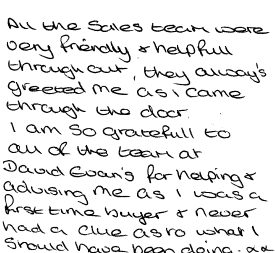 All the Sales team were
very friendly & helpfull
throughout, they always's
greeted me as i came
through the door.
I am so gratefull to
all of the team at
David Evan's for helping &
advising me as I was a
first time buyer & never
had a clue as to what I
should have been doing.